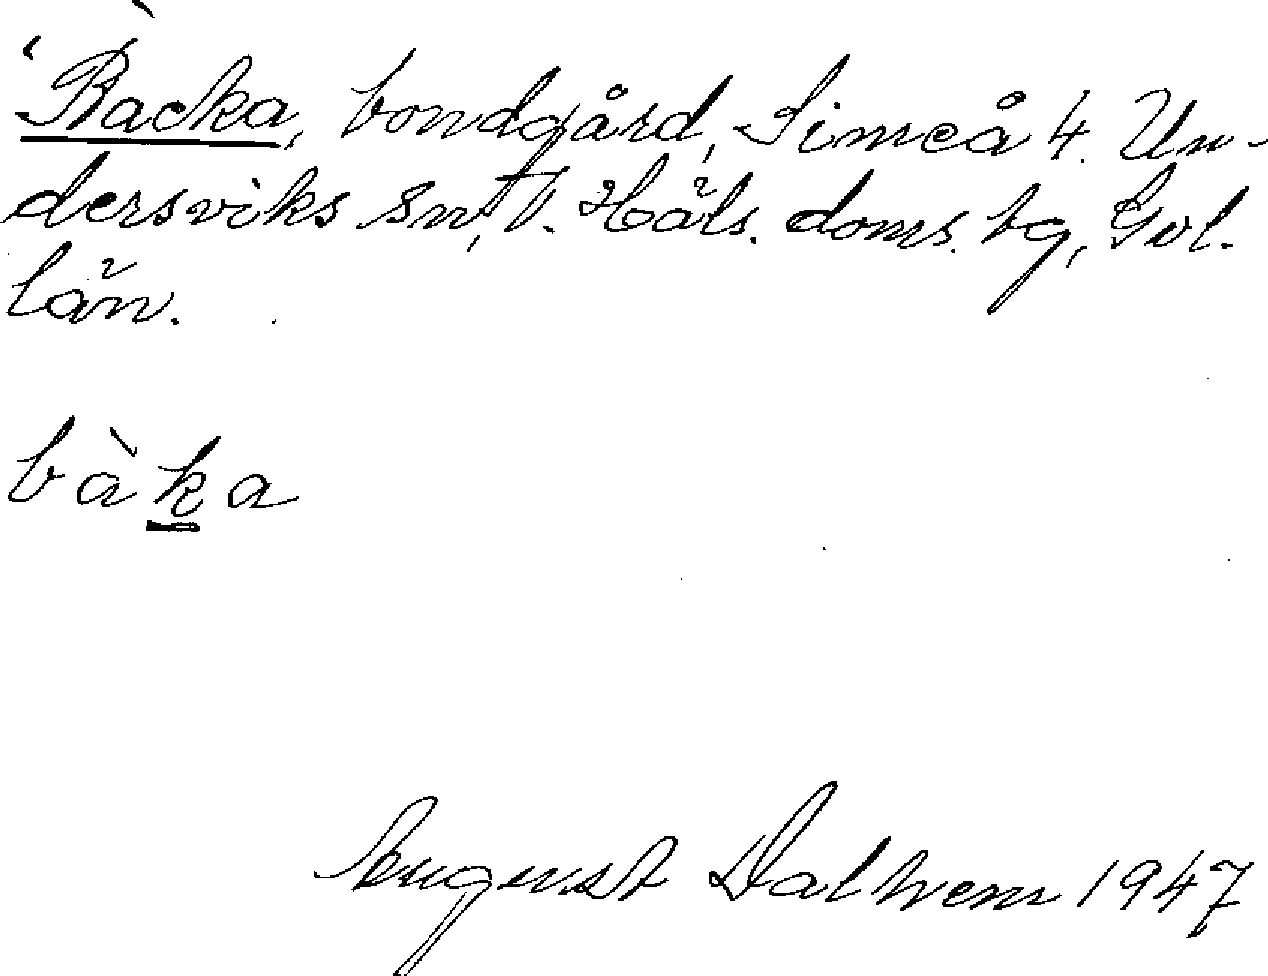 Backa, bondgård, Simeå 4. Un-
dersviks sn, V. Häls. doms. bg, Gvl.
län.
bàka
August Dalhem 1947